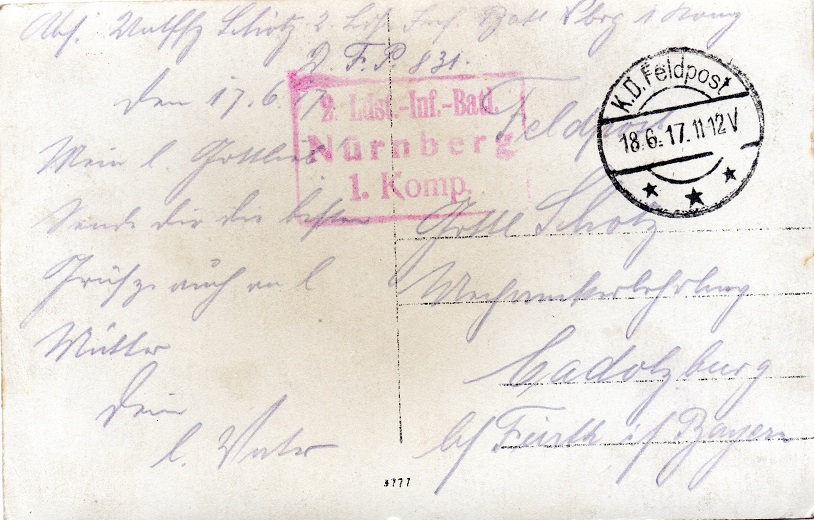 Abs: Wolfg Schotz 2 Lds. Inf. Batl Nbrg 1 Komp
D. F. P. 831.
Den 17.6.17
2. Ldst.-Inf.-Batl.
Nürnberg
1. Komp.
K.D. Feldpost
18.6.17.11-12V
Feldpost
Mein l. Gottlieb
Sende dir die besten
Grüße auch an l
Mutter
Dein
l. Vater
Schotz
Mechanikerlehrling
Cadolzburg
b/ Fürth i/ Bayern
3777